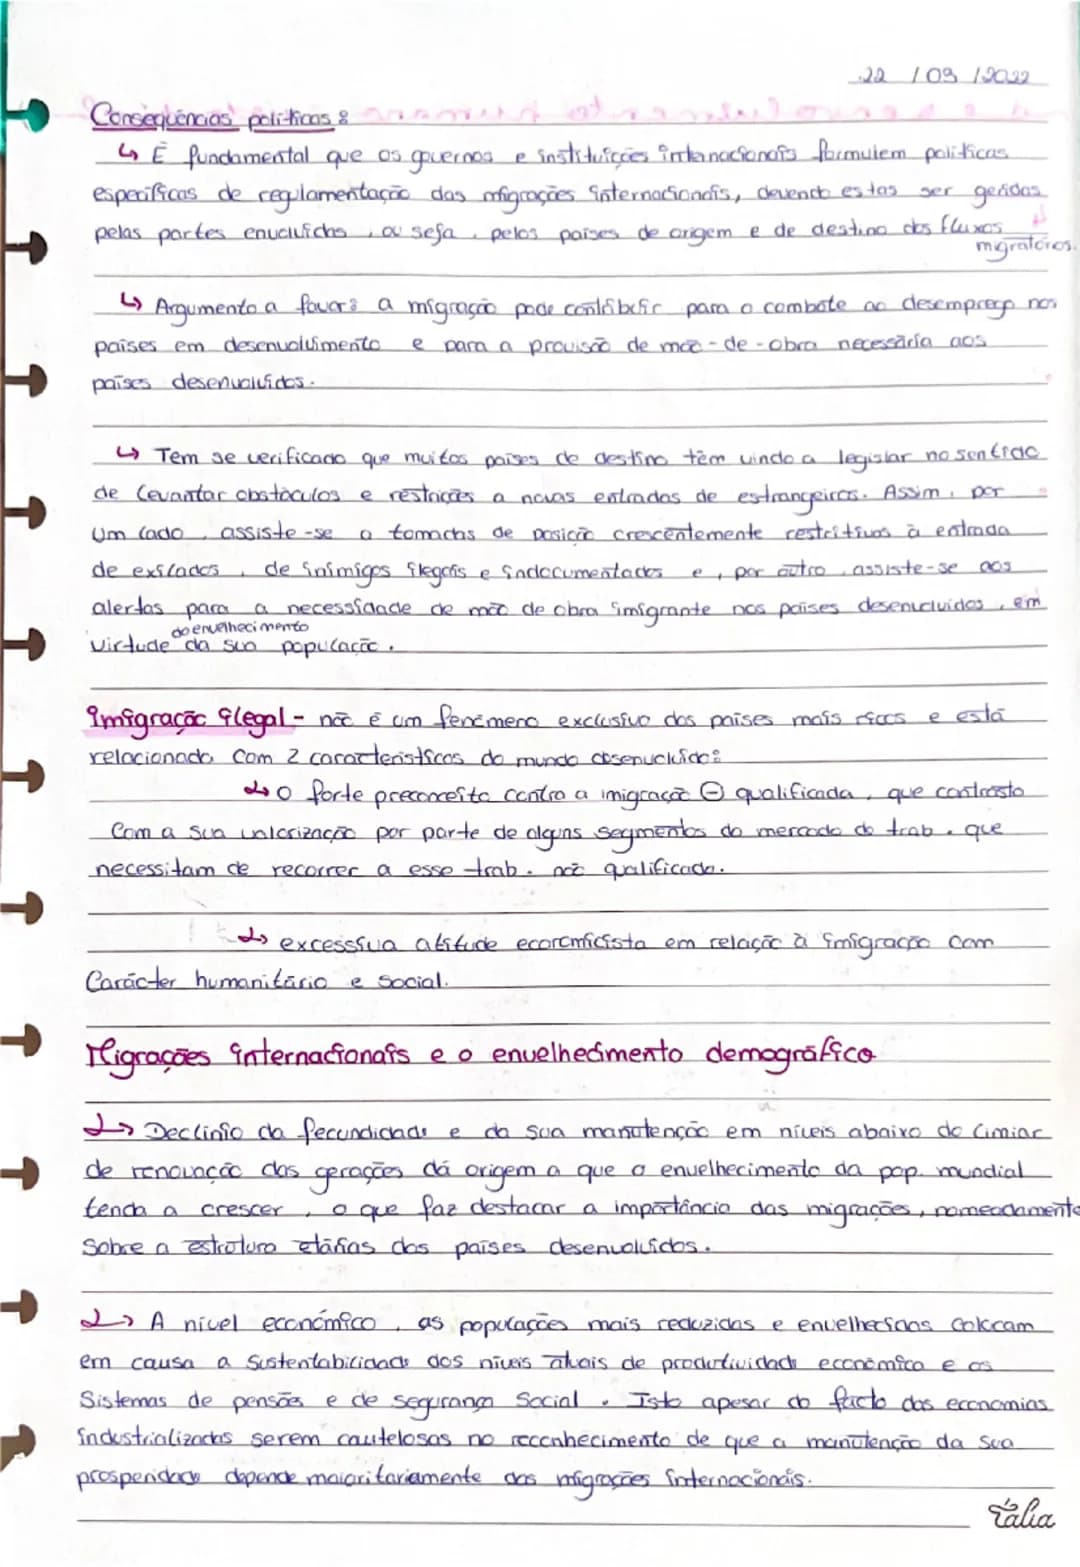 22 / 03 / 2022
Consequências políticas:
↳ É fundamental que os governos e instituições internacionais formulem políticas
específicas de regulamentação das migrações internacionais, devendo estas ser geridas
pelas partes envolvidas, ou seja, pelos países de origem e de destino dos fluxos
migratórios.
↳ Argumento a favor: a migração pode contribuir para o combate ao desemprego nos
países em desenvolvimento e para a provisão de mão-de-obra necessária aos
países desenvolvidos.
↳ Tem se verificado que muitos países de destino têm vindo a legislar no sentido
de levantar obstáculos e restrições a novas entradas de estrangeiros. Assim, por
um lado, assiste-se a tomadas de posição crescentemente restritivas à entrada
de exilados, de inimigos ilegais e indocumentados e, por outro, assiste-se aos
alertas para a necessidade de mão de obra imigrante nos países desenvolvidos, em
do envelhecimento
virtude da sua população.
Imigração ilegal - não é um fenómeno exclusivo dos países mais ricos e está
relacionado com 2 características do mundo desenvolvido:
↳ o forte preconceito contra a imigração ⊖ qualificada, que contrasta
com a sua valorização por parte de alguns segmentos do mercado do trab. que
necessitam de recorrer a esse trab. não qualificado.
↳ excessiva atitude economicista em relação à imigração com
carácter humanitário e social.
Migrações internacionais e o envelhecimento demográfico
↳ Declínio da fecundidade e da sua manutenção em níveis abaixo do limiar
de renovação das gerações dá origem a que o envelhecimento da pop. mundial
tenda a crescer, o que faz destacar a importância das migrações, nomeadamente
sobre a estrutura etárias dos países desenvolvidos.
↳ A nível económico, as populações mais reduzidas e envelhecidas colocam
em causa a sustentabilidade dos níveis atuais de produtividade económica e os
sistemas de pensões e de segurança social. Isto apesar do facto das economias
industrializadas serem cautelosas no reconhecimento de que a manutenção da sua
prosperidade depende maioritariamente das migrações internacionais.
Tália